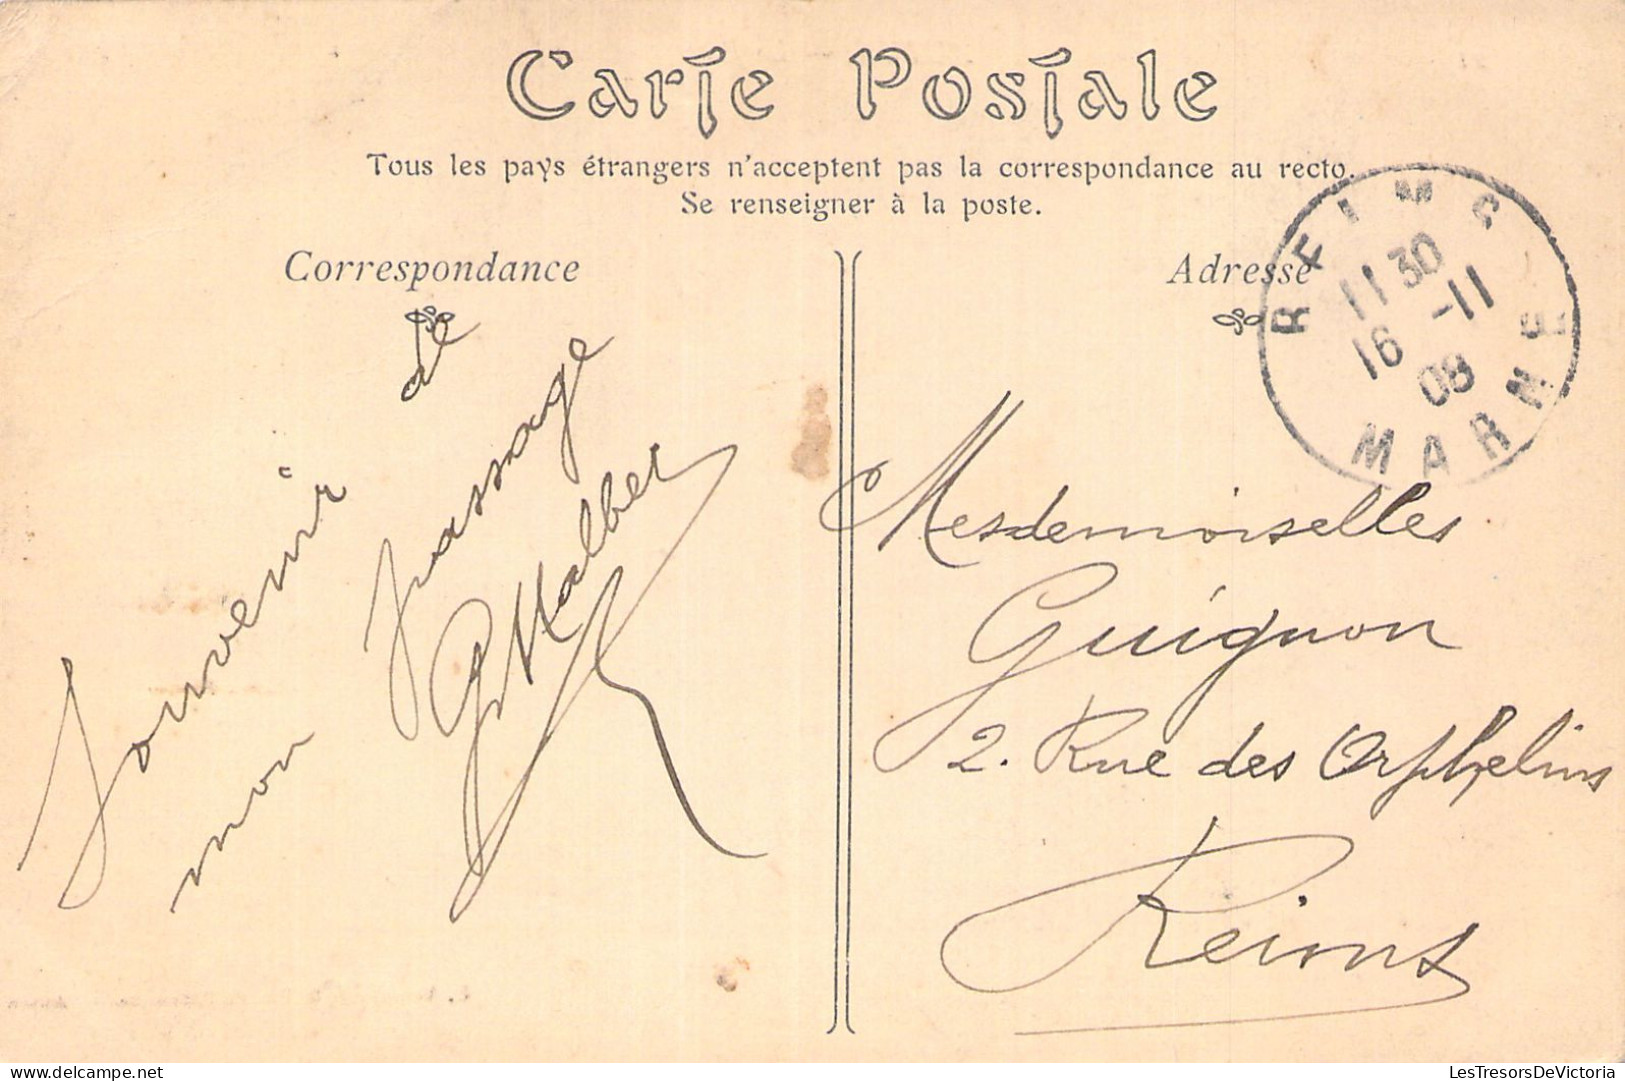 Carte Postale
Tous les pays étrangers n'acceptent pas la correspondance au recto.
Se renseigner à la poste.
Correspondance
Adresse
REIMS
11 30
16 -11
08
MARNE
Souvenir de
mon passage
Mesdemoiselles
Guignon
2. Rue des Orphelins
Reims
LesTresorsDeVictoria